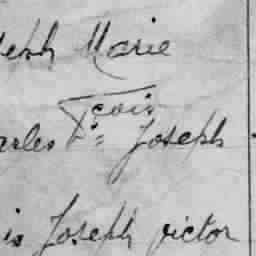 seph Marie
Fçois
arles Joseph
is Joseph victor